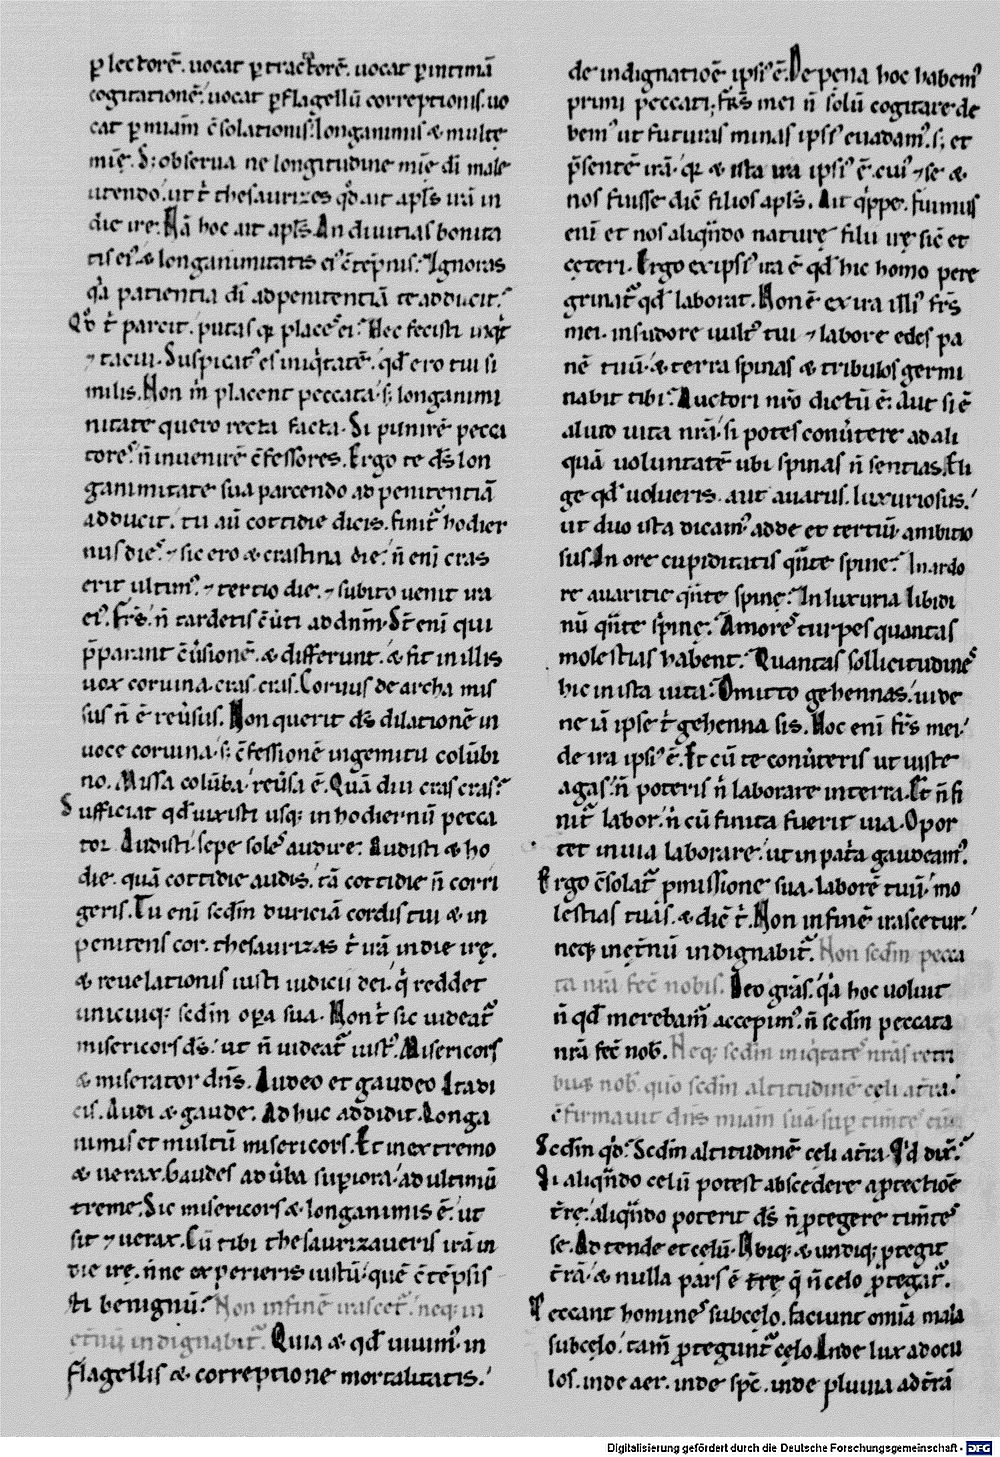 ꝑ lectorē. uocat ꝑ tractorē. uocat ꝑ intimā
cogitationē. uocat ꝑ flagellū correptionis. uo
cat ꝑ mīam cͨsolationis. Longanimis & multę
mię. S; obserua ne longitudine mię dī male
utendo. ut t̄ thesaurizes qd̄ ait apl̄s irā in
die irę. Nā hoc ait apl̄s. An diuitias bonita
tis ei᾽ & longanimitatis ei᾽ cͨtēpnis. Ignoras
qꝛa patientia dī ad penitentiā te adducit.
Qd̄ t̄ parcit. putas qꝛ places ei. Hec fecisti inqͥt
⁊ tacui. Suspicat᾽ es iniqͥtatē. qd̄ ero tui si
milis. Non m̄ placent peccata. s; longanimi
nitate quero recta facta. Si punirē pecca
tores. n̄ inuenirē cͨfessores. Ergo te ds̄ lon
ganimitate sua parcendo ad penitentiā
adducit. tu aū cottidie dicis. finit᾽ hodier
nus dies. ⁊ sic ero & crastina die. n̄ enī cras
erit ultim᾽. ⁊ tertio die. ⁊ subito uenit ira
ei᾽. Fr̄s. n̄ tardetis cͨuti ad dn̄m. St̄ enī qui
p̄parant cͨuersionē. & differunt. & fit in illis
uox coruina. cras. cras. Coruus de archa mis
sus n̄ ē reuersus. Non querit ds̄ dilationē in
uoce coruina. s; cͨfessionē in gemitu colūbi
no. Missa colūba. reuersa ē. Quā diu cras cras.
Sufficiat qd̄ uixisti usq; in hodiernū pecca
tor. Audisti. sepe soles audire. Audisti & ho
die. quā cottidie audis. tā cottidie n̄ corri
geris. Tu enī scd̄m duriciā cordis tui & in
penitens cor. thesaurizas t̄ irā in die irę.
& reuelationis iusti iudicii dei. qͥ reddet
unicuiq; scd̄m oꝑa sua. Non t̄ sic uideat᾽
misericors ds̄. ut n̄ uideat᾽ iust᾽. Misericors
& miserator dn̄s. Audeo et gaudeo. Ita di
cis. Audi & gaude. Ad huc addidit. Longa
nimis et multū misericors. Et in extremo
& uerax. Gaudes ad uerba supiora. ad ultimū
treme. Sic misericors & longanimis ē. ut
sit ⁊ uerax. Cū tibi thesaurizaueris irā in
die irę. n̄ne experieris iustū. quē cͨtēpsis
ti benignū. Non in finē irascet᾽. neq; in
et̄nū indignabit᾽. Quia & qd̄ uiuim᾽. in
flagellis & correptione mortalitatis.
de indignatiōe ipsi᾽ ē. De pena hoc habem᾽
primi peccati. fr̄s mei n̄ solū cogitare de
bem᾽ ut futuras minas ipsi᾽ euadam᾽. s; et
p̄sentē irā. qꝛ & ista ira ipsi᾽ ē. cui᾽ ⁊ se &
nos fuisse dic̄ filios apl̄s. Ait qͥppe. fuimus
enī et nos aliqn̄do naturę filii irę sic̄ et
cęteri. Ergo ex ipsi᾽ ira ē qd̄ hic homo pere
grinat᾽ qd̄ laborat. Non ē ex ira illi᾽ fr̄s
mei. in sudore uult᾽ tui ⁊ labore edes pa
nē tuū. & terra spinas & tribulos germi
nabit tibi. Auctori nr̄o dictū ē. Aut si ē
alia uita nr̄a. si potes conuertere ad ali
quā uoluntatē ubi spinas n̄ sentias. Eli
ge qd̄ uolueris. aut auarus. luxuriosus.
ut duo ista dicam᾽. adde et tertiū. ambitio
sus. In ore cupiditatis qn̄te spinę. In ardo
re auaritie qn̄te spinę. In luxuria libidi
nū qn̄te spinę. Amores turpes quantas
molestias habent. Quantas sollicitudines
hic in ista uita. Omitto gehennas. uide
ne iā ipse t̄ gehenna sis. Hoc enī fr̄s mei.
de ira ipsi᾽ ē. Et cū te conuerteris ut iuste
agas. n̄ poteris n̄ laborare in terra. Et n̄ fi
nit᾽ labor. n̄ cū finita fuerit uia. Opor
tet in uia laborare. ut in patria gaudeam᾽.
Ergo cͨsolat᾽ ꝓmissione sua. laborē tuū. mo
lestias tuas. & dic̄ t̄. Non in finē irascetur.
neq; in ęt̄nū indignabit᾽. Non scd̄m pecca
ta nr̄a fec̄ nobis. Deo grās. qꝛa hoc uoluit
n̄ qd̄ merebam᾽ accepim᾽. n̄ scd̄m peccata
nr̄a fec̄ nob̄. Neq; scd̄m iniqͥtates nr̄as retri
buit nob̄. qm̄ scd̄m altitudinē cęli a t̄ra.
cͨfirmauit dn̄s mīam suā. suꝑ tim̄tes eū.
Scd̄m qd̄. Scd̄m altitudinē cęli a t̄ra. Qͥd dix̄.
Si aliqn̄do celū potest abscedere a ꝓtectiōe
t̄rę. aliqn̄do poterit ds̄ n̄ ꝓtegere tim̄tes
se. Adtende et cęlū. Vbiq; & undiq; ꝓtegit
t̄rā. & nulla pars ē t̄rę qͣ n̄ celo ꝓtegat᾽.
Peccant homines sub cęlo. faciunt omīa mala
sub cęlo. tam̄ ꝓtegunt᾽ cęlo. Inde lux ad ocu
los. inde aer. inde spc̄. inde pluuia ad t̄rā
Digitalisierung gefördert durch die Deutsche Forschungsgemeinschaft - DFG